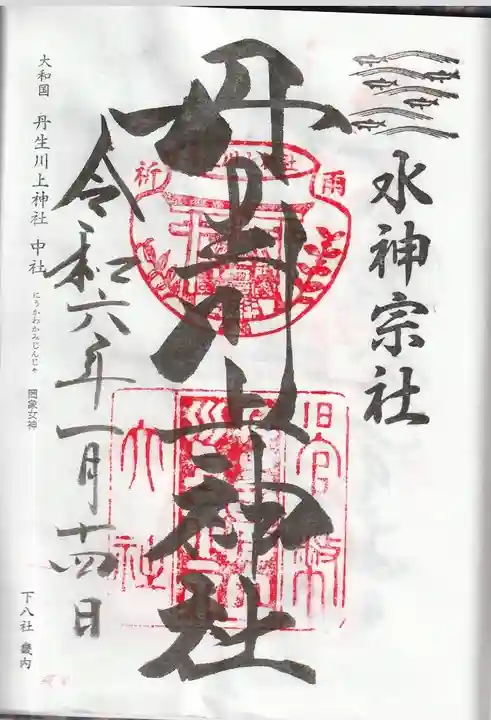 水神宗社
丹生川上神社
祈雨
川上社
旧官幣
大社
令和六年一月十四日
大和国 丹生川上神社 中社
にうかわかみじんじゃ
罔象女神
下八社 畿内